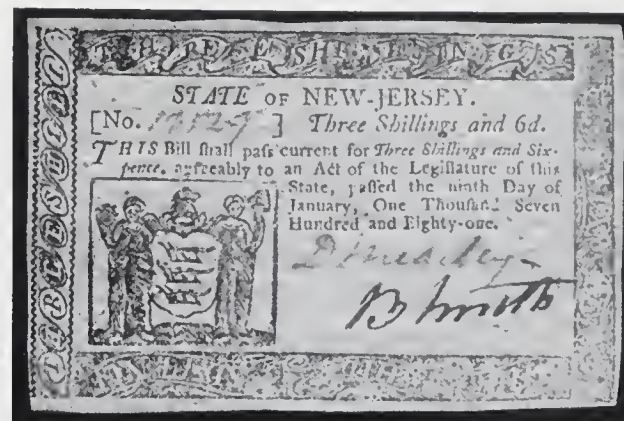 THREE SHILLINGS
STATE OF NEW-JERSEY.
[No. ] Three Shillings and 6d.
THIS Bill shall pass current for Three Shillings and Six-
pence, agreeably to an Act of the Legislature of this
State, passed the ninth Day of
January, One Thousand Seven
Hundred and Eighty-one.
B Smith